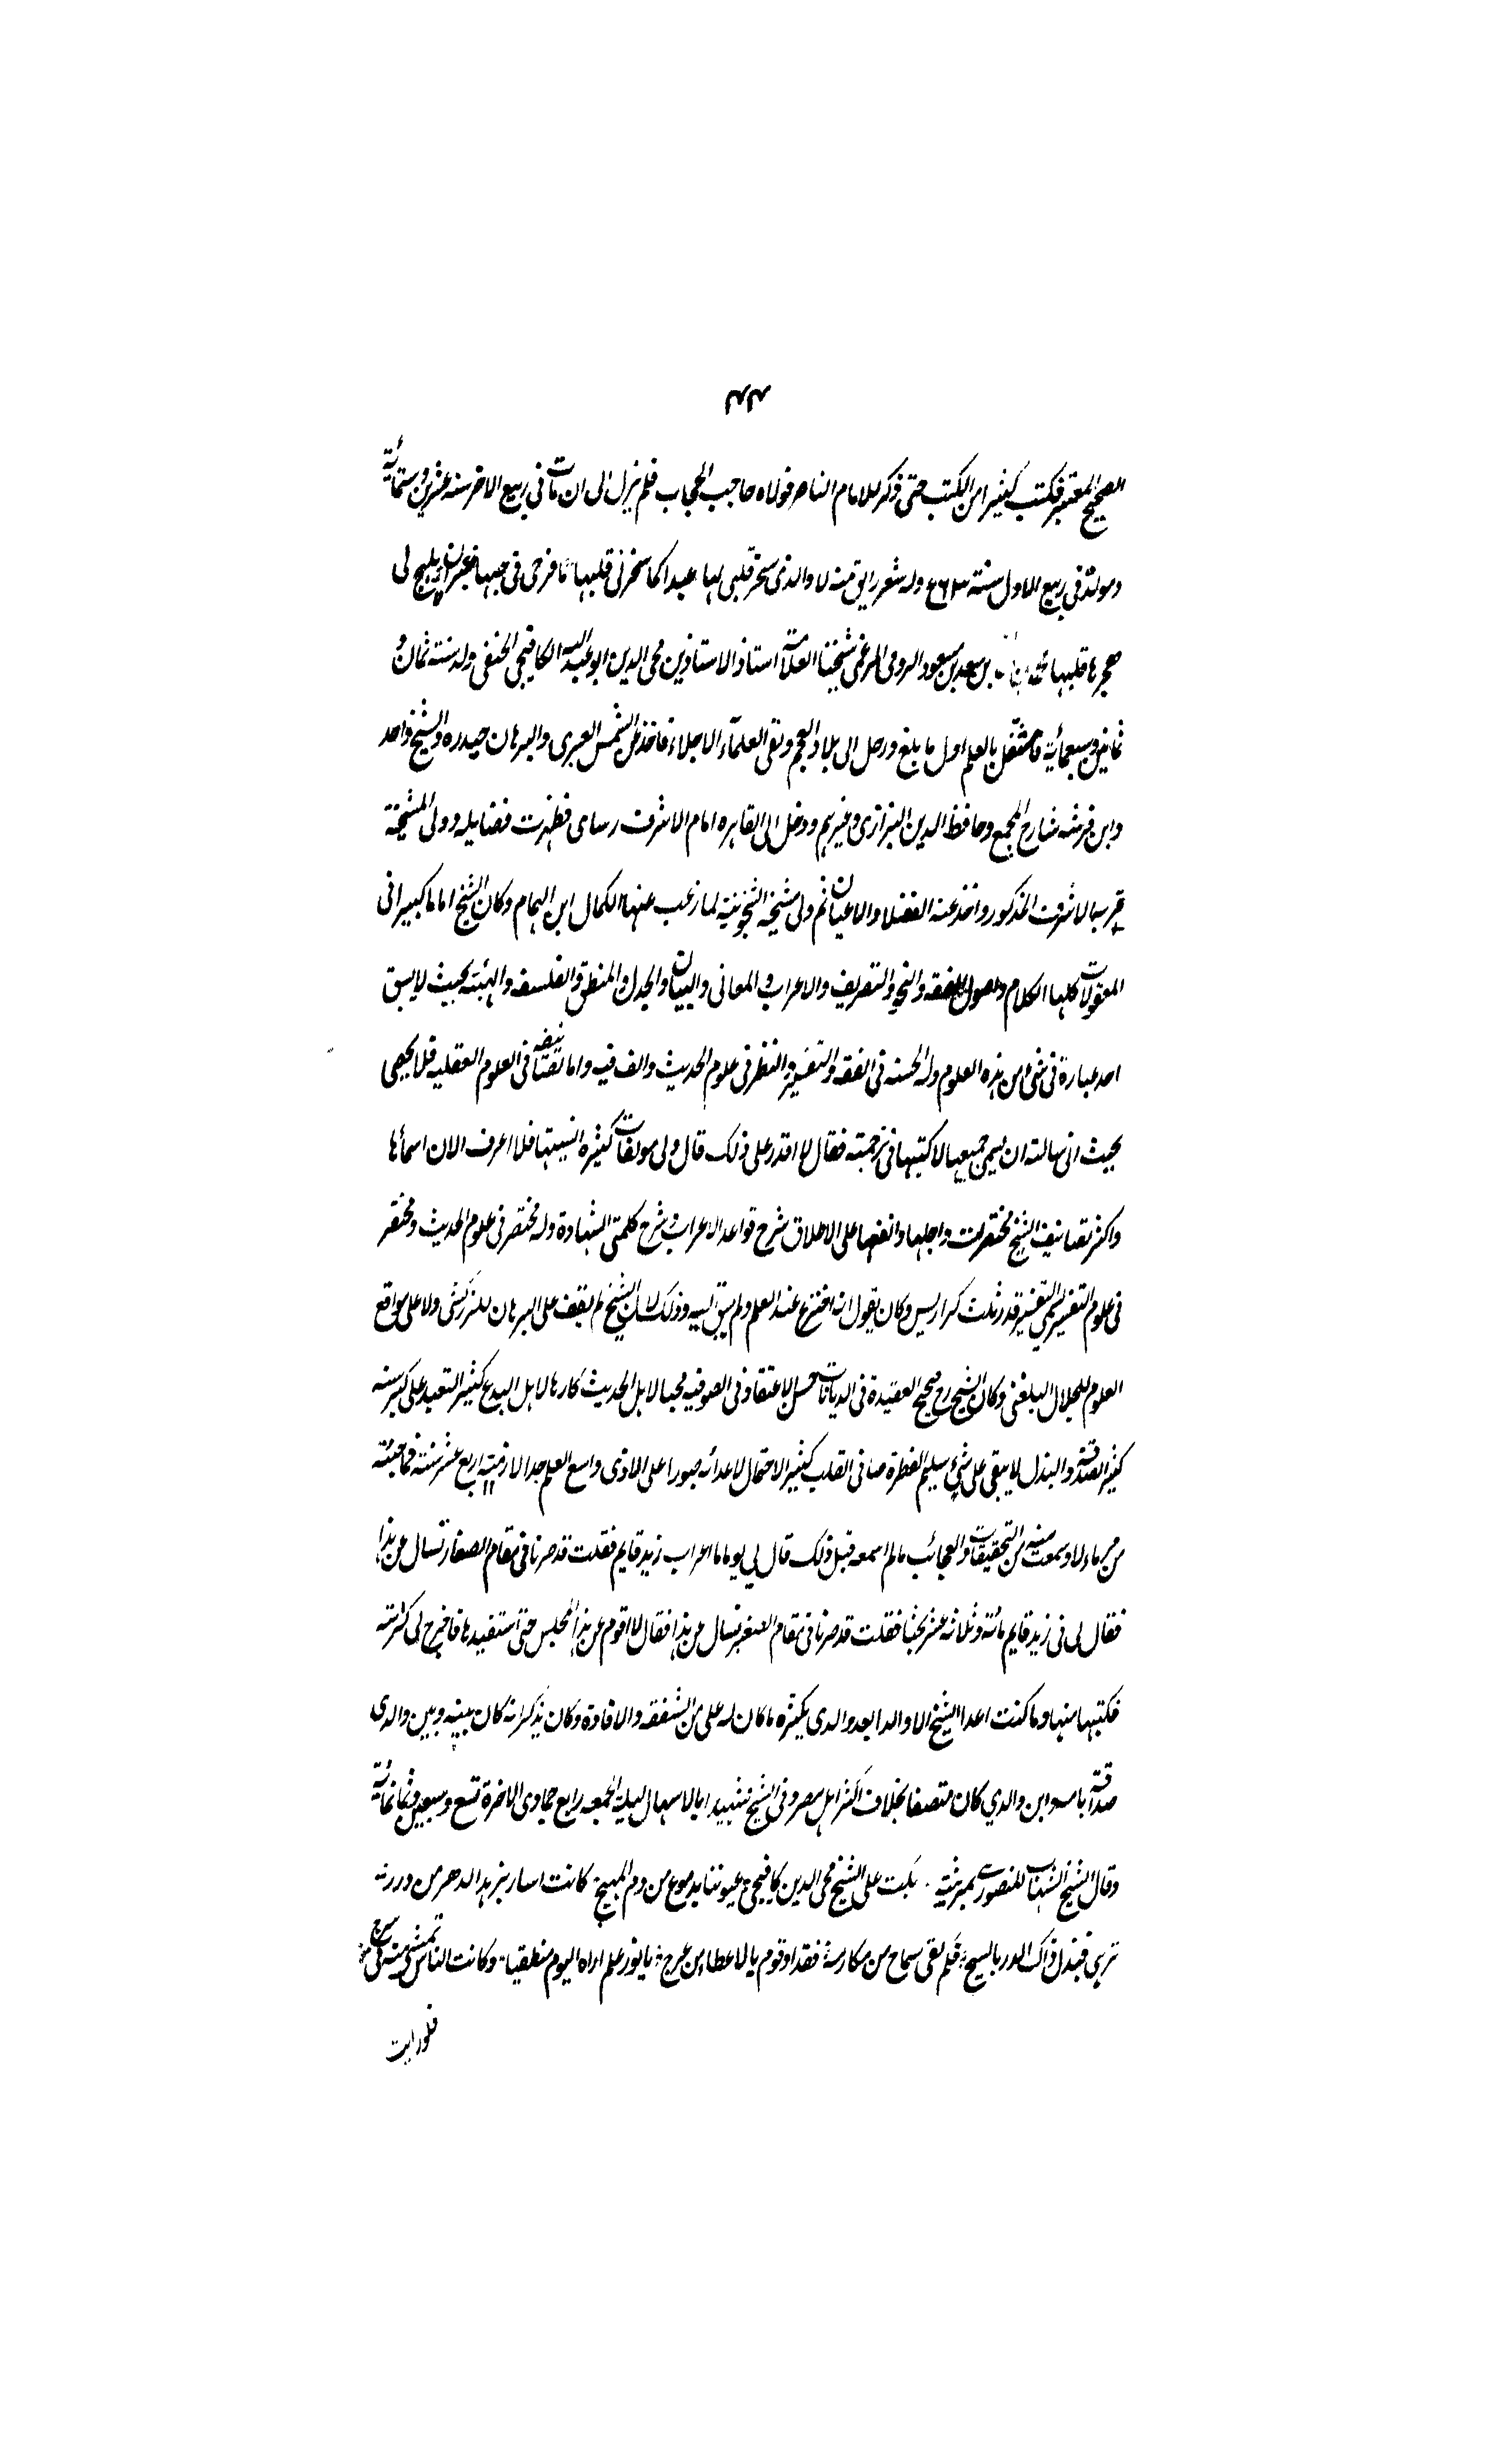 ٤٤
الصحيح المعتبر فكتب كثيرا من الكتب حتى ذكر للامام الناصر فولاه حاجب الحجاب فلم يزل الى ان مات فى ربيع الاخر سنه عشرين وستمائة
ومولده فى ربيع الاول سنة وله شعر رايق منه لا والذى سخر قلبى لها عبدا كما سخر لى قلبها ما فرحى فى حبها غير ان يبلج لى
حجرها قلبها بن سعد بن مسعود الرومى البرغمى شيخنا العلامة استاذ الاستاذين محى الدين ابو عبد الله الكافيجى الحنفى ولد سنة ثمان و
ثمانين وسبعمائة واشتغل بالعلم اول ما بلغ ورحل الى بلاد العجم ولقى العلماء الاجلاء فاخذ عن الشمس العبرى والبرهان حيدره والشيخ واحد
وابن فرشته شارح المجمع وحافظ الدين البزازى وغيرهم ودخل الى القاهره امام الاشرف رسباى فظهرت فضايله وولى المشيخة
بتربة الاشرف المذكور واخذ عنه الفضلا والاعيان ثم ولى مشيخة الشيخونية لما رغب عنها الكمال ابن الهمام وكان الشيخ اماما كبيرا فى
المعقولات كلها الكلام واصول الفقه والنحو والتصريف والاعراب والمعانى والبيان والجدل والمنطق والفلسفه والهيئة بحيث لا يسبق
احد عبارة فى شئ من هذه العلوم وله الحسنه فى الفقه والتفسير والنظر فى علوم الحديث والف فيه واما تصانيفه فى العلوم العقليه فلا يحصى
بحيث انى سالته ان يسمى جميعها لاكتبها فى ترجمته فقال لا اقدر على ذلك قال ولى مولفات كثيره انسيتها فلا اعرف الان اسمائها
واكثر تصانيف الشيخ مختصرات واجلها وانفعها على الاطلاق شرح قواعد الاعراب وشرح كلمتى الشهادة وله مختصر فى علوم الحديث ومختصر
فى علوم التفسير يسمى التيسير قدر ثلث كراريس وكان يقول انه اخترع عنه العلم ولم يسبق اليه وذلك لان الشيخ لم يقف على البرهان للزركشى ولا على مواقع
العلوم للجلال البلقينى وكان الشيخ رح صحيح العقيدة فى الديانات حسن الاعتقاد فى الصوفيه محبا لاهل الحديث كارها لاهل البدع كثير التعبد على كبر سنه
كثير الصدقة والبذل لا يبقى على شئ سليم الفطرة صافى القلب كثير الاحتمال لاعدائه صبورا على الاذى واسع العلم جدا لازمته اربع عشر سنة فما جئته
من مرة الا وسمعت منه من التحقيقات والعجائب مالم اسمعه قبل ذلك قال لى يوما ما اعراب زيد قايم فقلت قد صرنا فى مقام الصغار نسال عن هذا
فقال لى فى زيد قايم مائة وثلاثه عشر بحثا فقلت قد صرنا فى مقام الصغر نسال عن هذا فقال لا اقوم عن هذا المجلس حتى استفيدها فاخرج لى كراسته
فكتبتها منها وما كنت اعد الشيخ الا والدا بعد والدى بكثرة ما كان له على من الشفقه والافادة وكان يذكر انه كان بينه وبين والدى
صداقة تامه وان والدي كان متصفا بخلاف اكثر اهل مصر توفى الشيخ شهيدا بالاسهال ليلة الجمعه رابع جمادى الاخرة تسع وسبعين وثمانمائة
وقال الشيخ الشهاب المنصورى يمرثيه . بكت على الشيخ محى الدين كافيجى عيوننا بدموع من دم المهج كانت اسارير هذا الدهر من درره
تزهى فبدل ذاك الدر بالسبج فكم نفى سماح من مكارمه فقد اوقوم بالاعطاء من عرج يا نور علم اراه اليوم منطفيا وكانت الناس تمشى منه فى سرج
فلو رايت